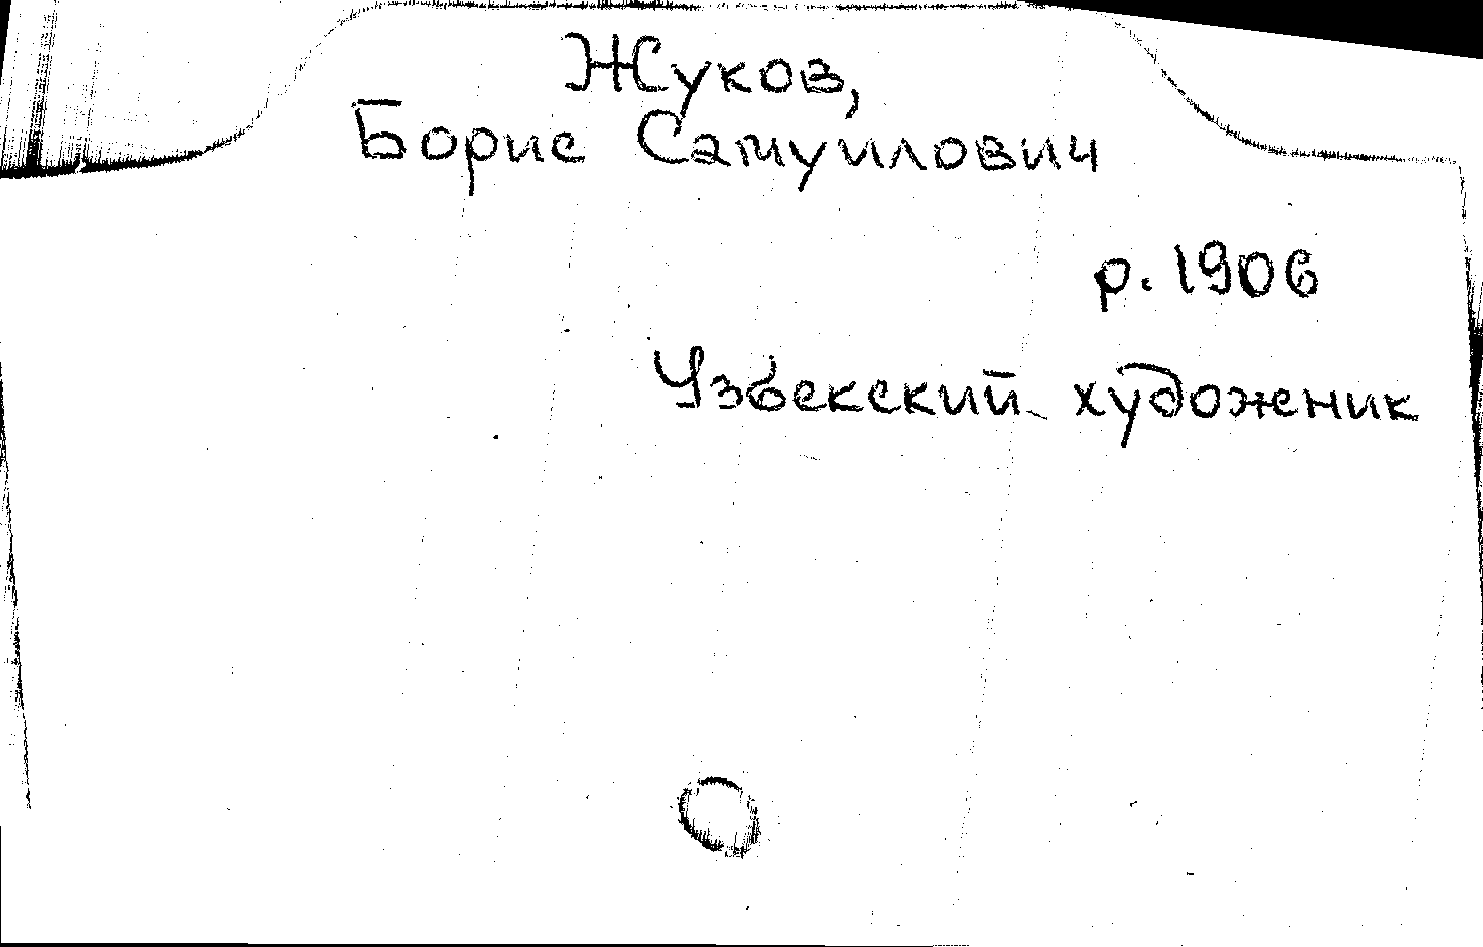 Жуков,
Борис Самуилович
р. 1906
Узбекский художник